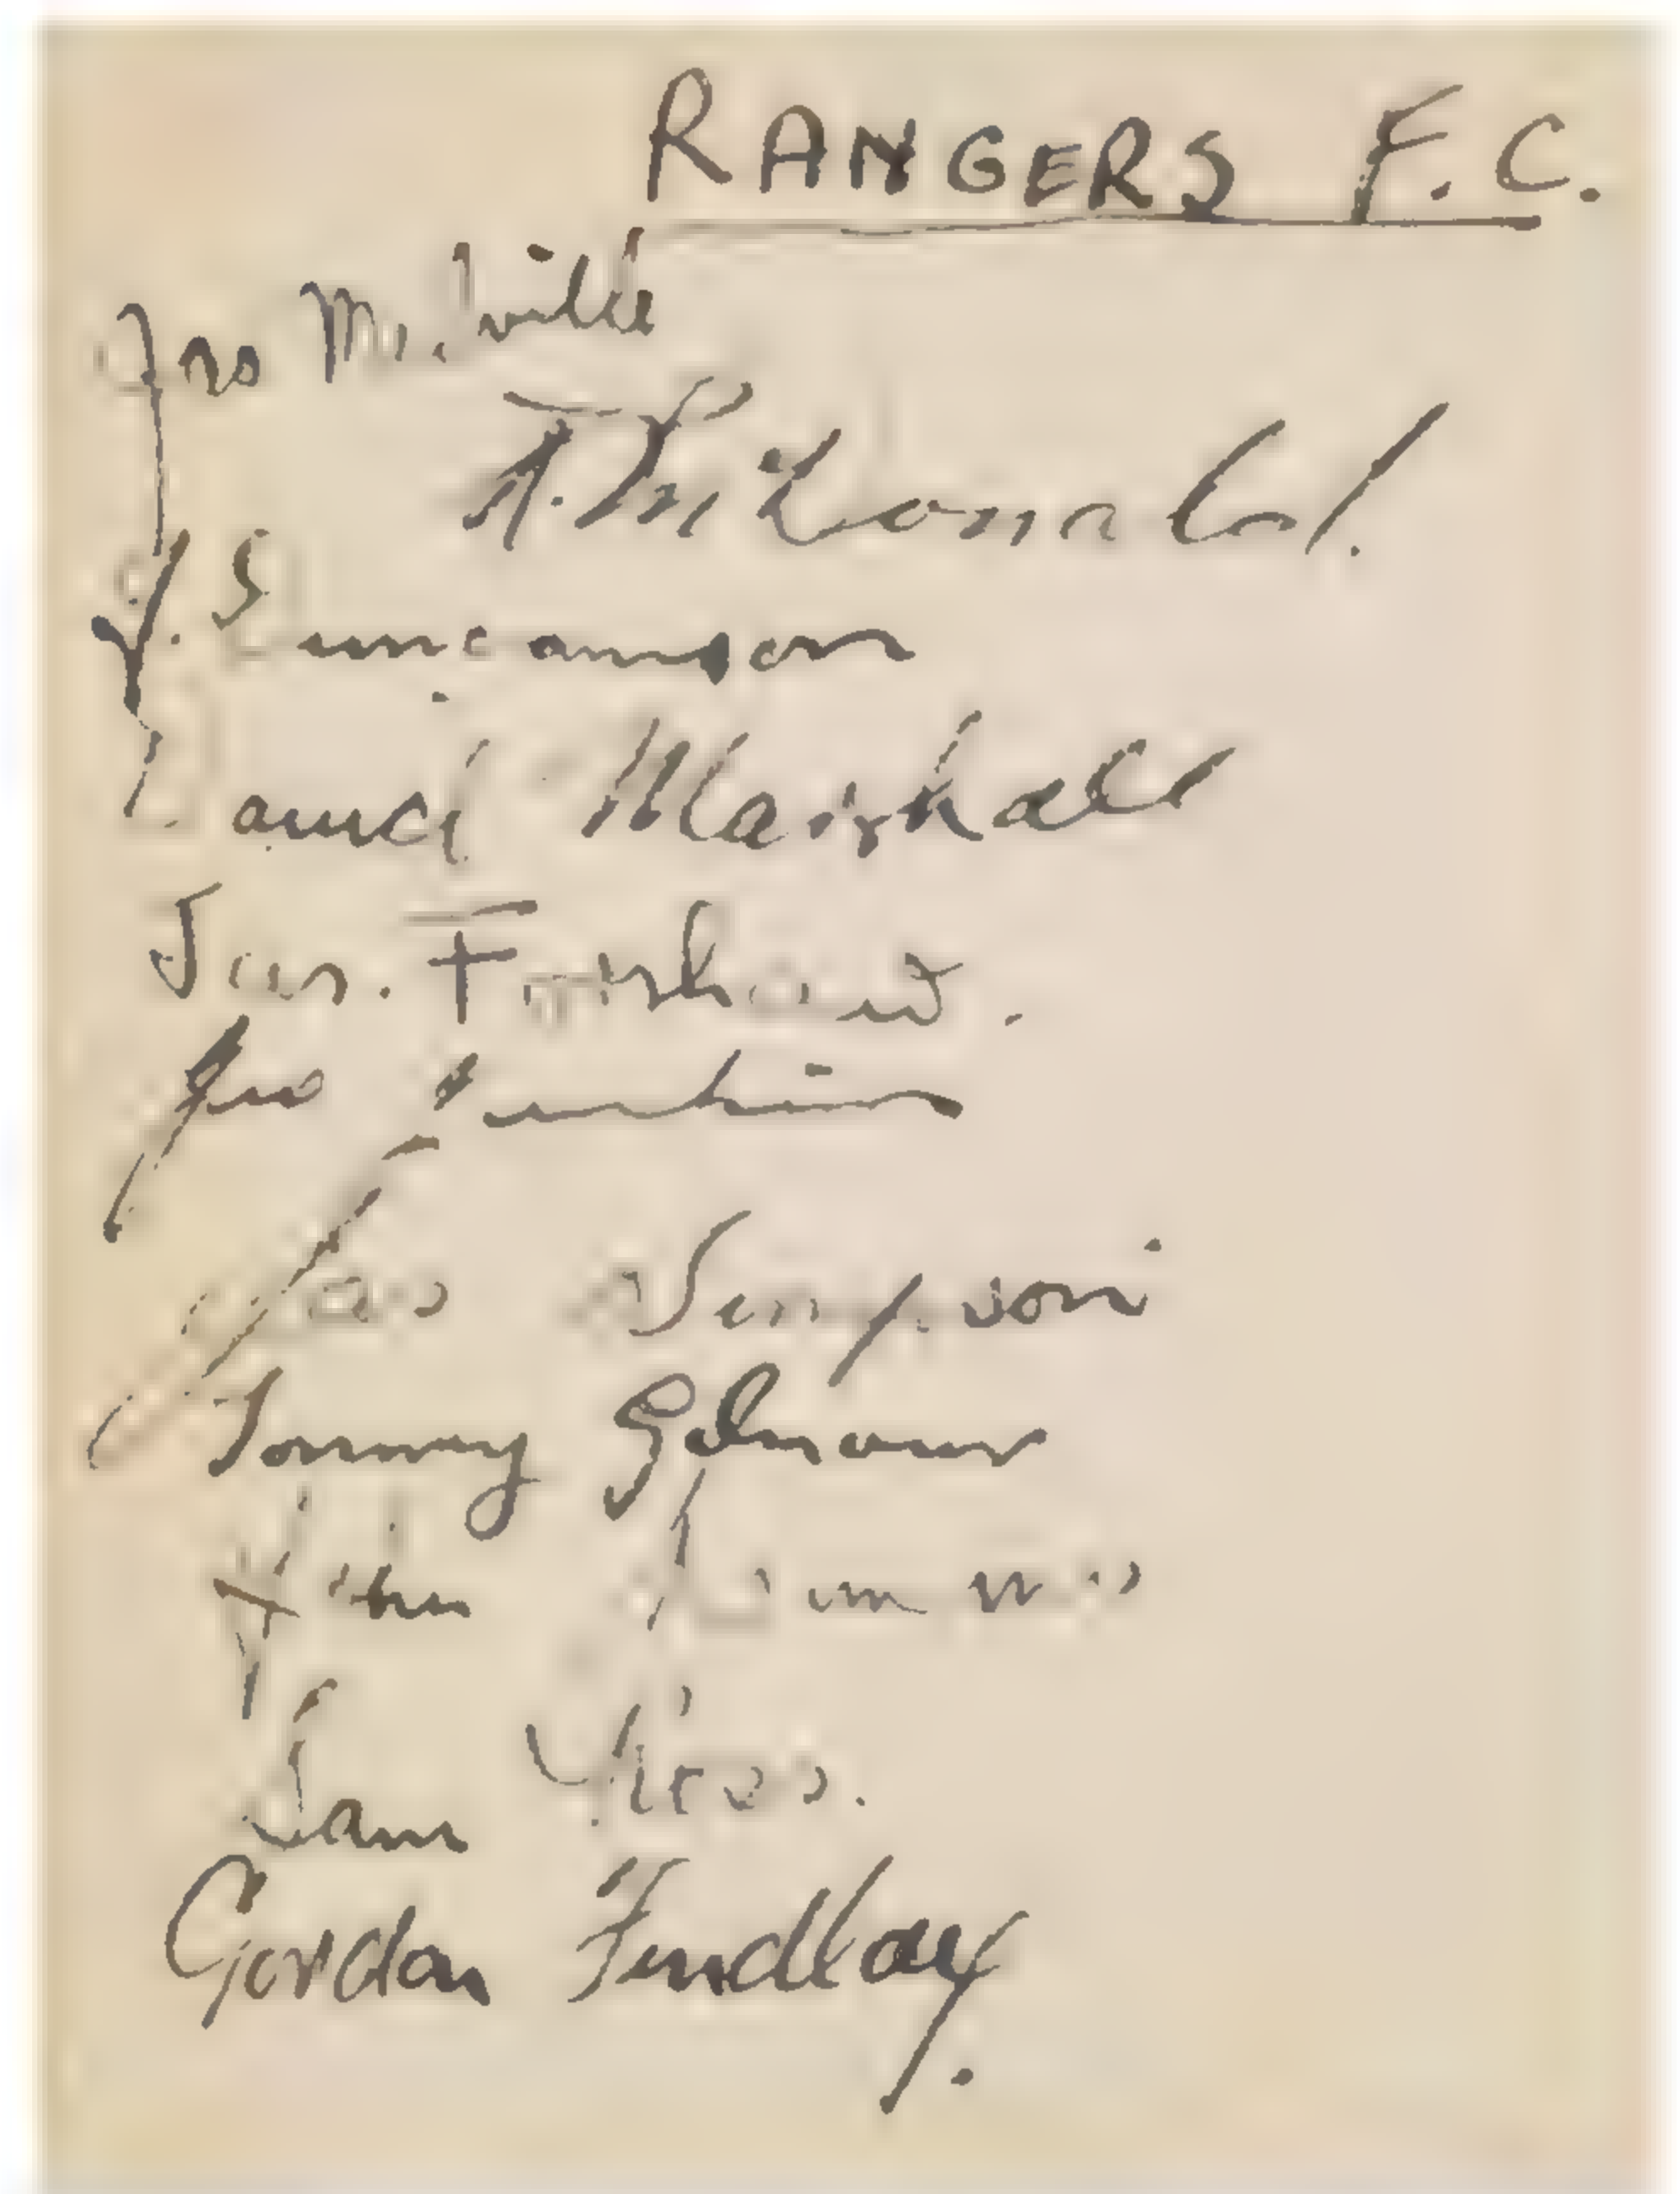 RANGERS F.C.
Jno Melville
A. McDonald.
J. Duncanson
David Marshall
Jas. Fiorhaut.
Jno
Jas Simpson
Tommy Gilmour
John
Sam
Gordon Findlay.